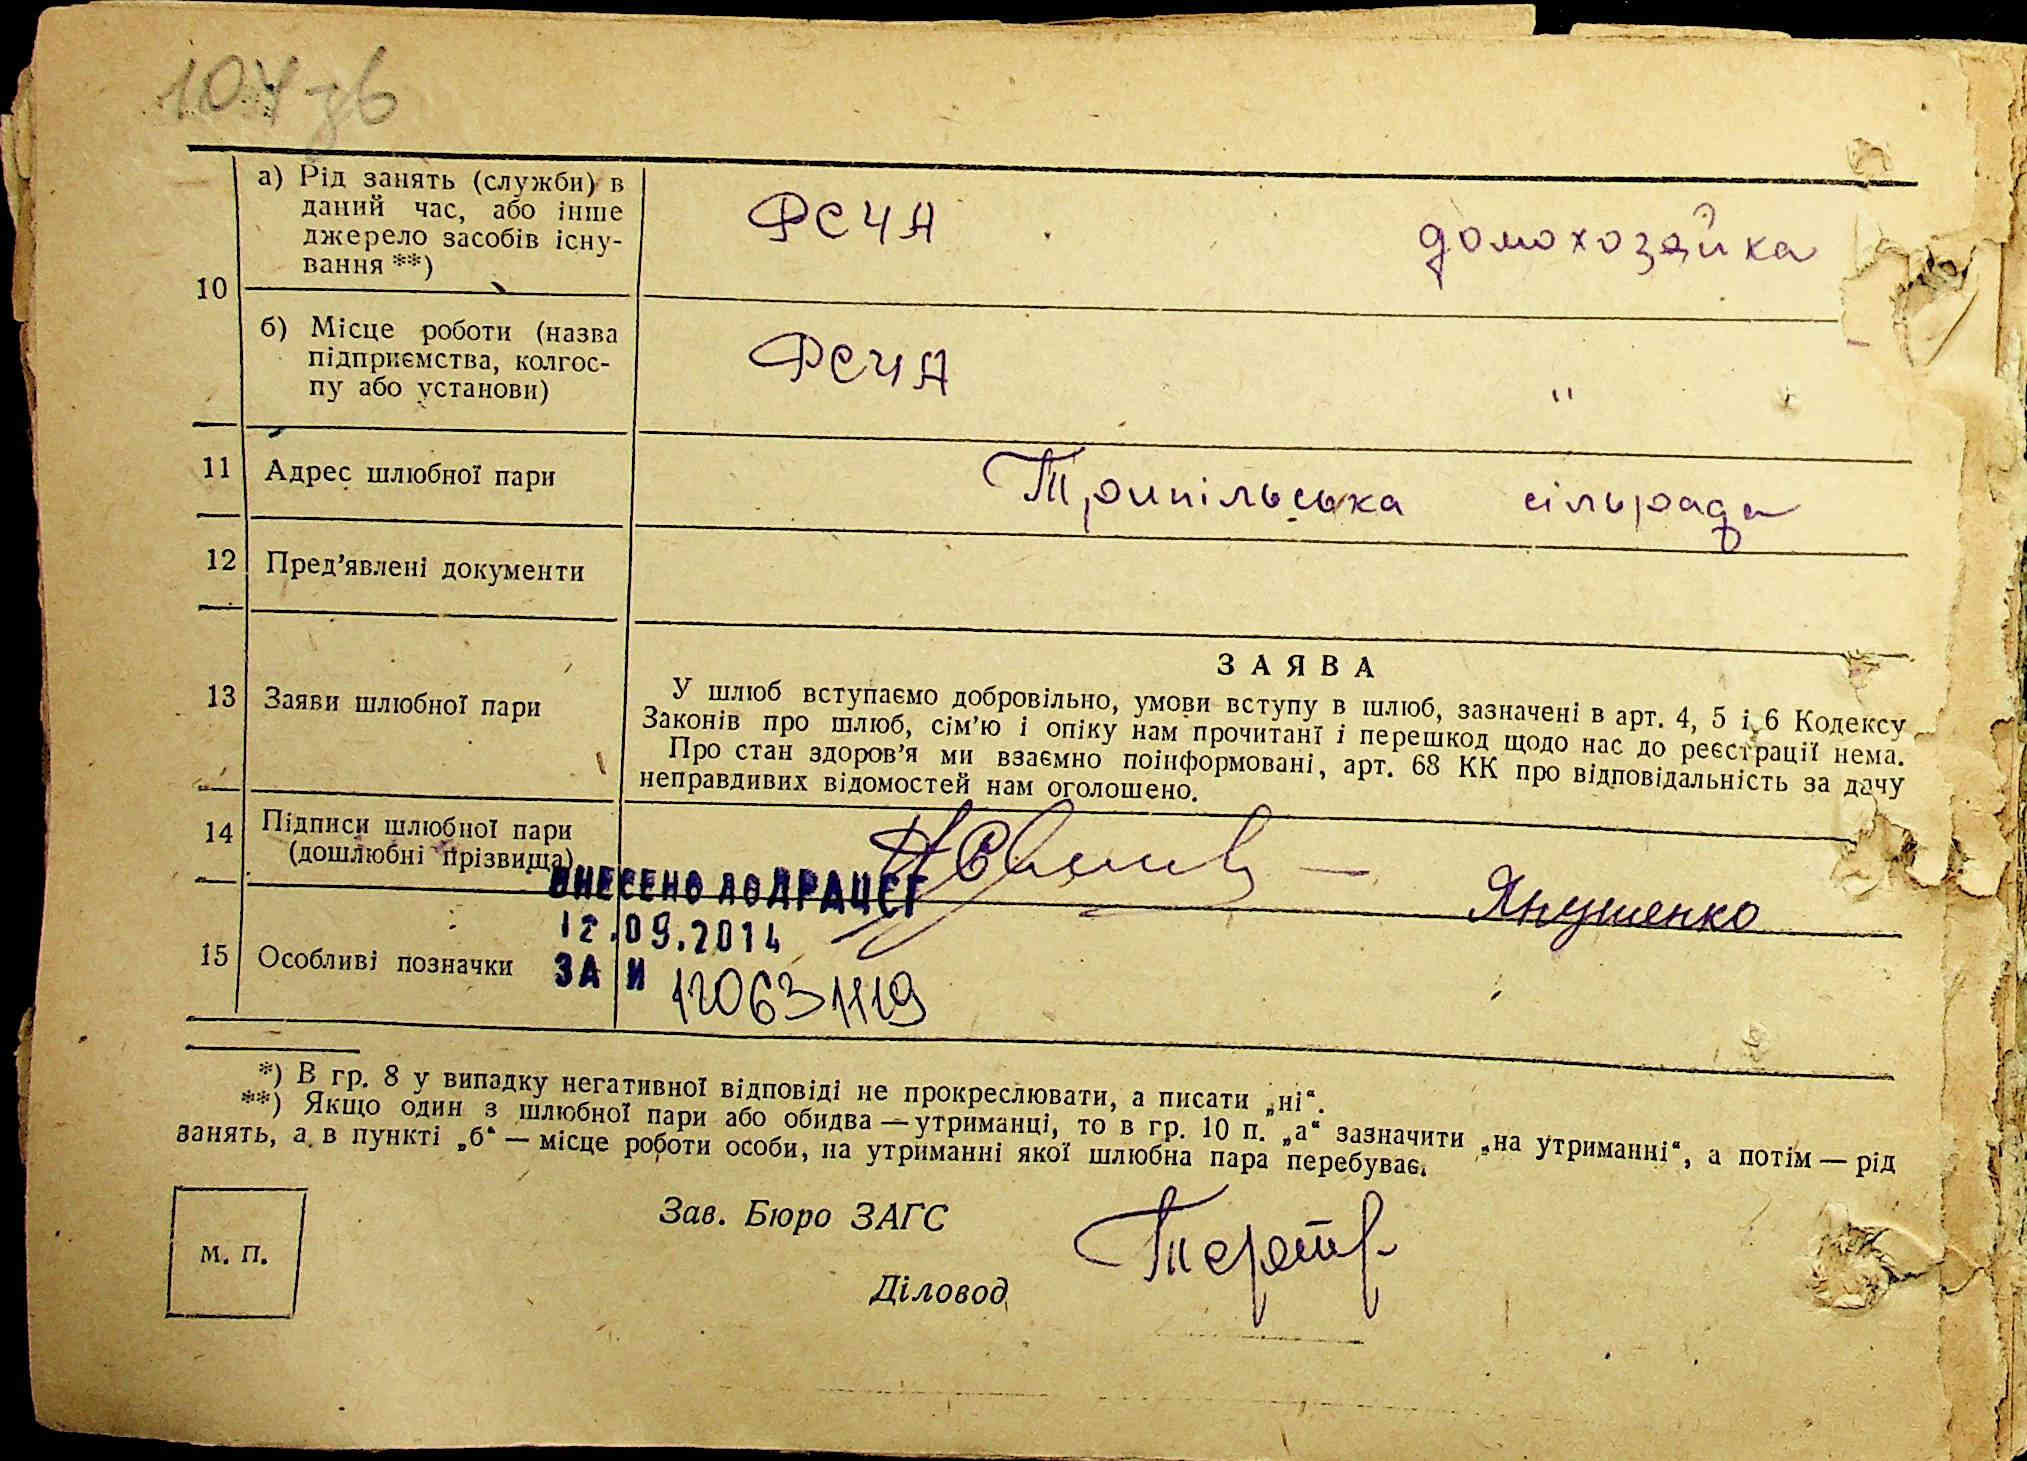 107 зв
а) Рід занять (служби) в
даний час, або інше
джерело засобів існу-
вання **)
РСЧА
домохозяйка
10
б) Місце роботи (назва
підприємства, колгос-
пу або установи)
РСЧА
"
11 Адрес шлюбної пари
Трипільська сільрада
12 Пред'явлені документи
13 Заяви шлюбної пари
ЗАЯВА
У шлюб вступаємо добровільно, умови вступу в шлюб, зазначені в арт. 4, 5 і 6 Кодексу
Законів про шлюб, сім'ю і опіку нам прочитані і перешкод щодо нас до реєстрації нема.
Про стан здоров'я ми взаємно поінформовані, арт. 68 КК про відповідальність за дачу
неправдивих відомостей нам оголошено.
14 Підписи шлюбної пари
(дошлюбні прізвища)
Янушенко
ВНЕСЕНО ДО ДРАЦСГ
12.09.2014
15 Особливі позначки
ЗА И 120631119
*) В гр. 8 у випадку негативної відповіді не прокреслювати, а писати „ні“.
**) Якщо один з шлюбної пари або обидва — утриманці, то в гр. 10 п. „а“ зазначити „на утриманні“, а потім — рід
занять, а в пункті „б“ — місце роботи особи, на утриманні якої шлюбна пара перебуває.
Зав. Бюро ЗАГС
м. п.
Діловод